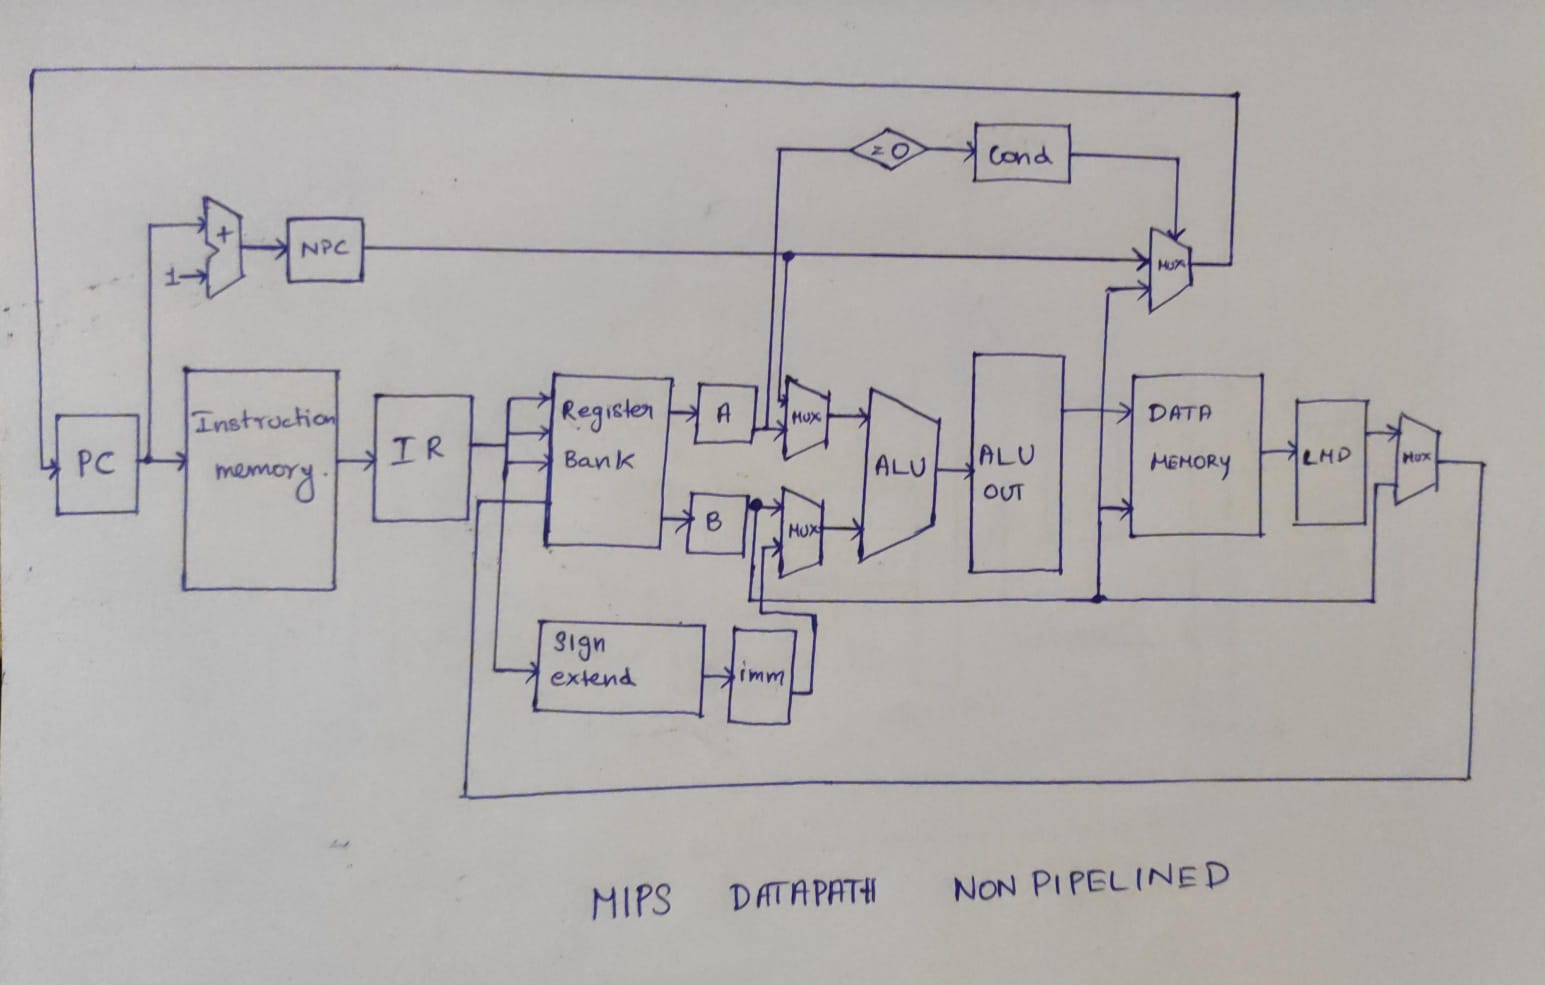 =0
Cond
+
NPC
1
MUX
PC
Instruction
memory.
IR
Register
Bank
A
B
MUX
MUX
ALU
ALU
OUT
DATA
MEMORY
LMD
MUX
Sign
extend
imm
MIPS DATAPATH NON PIPELINED